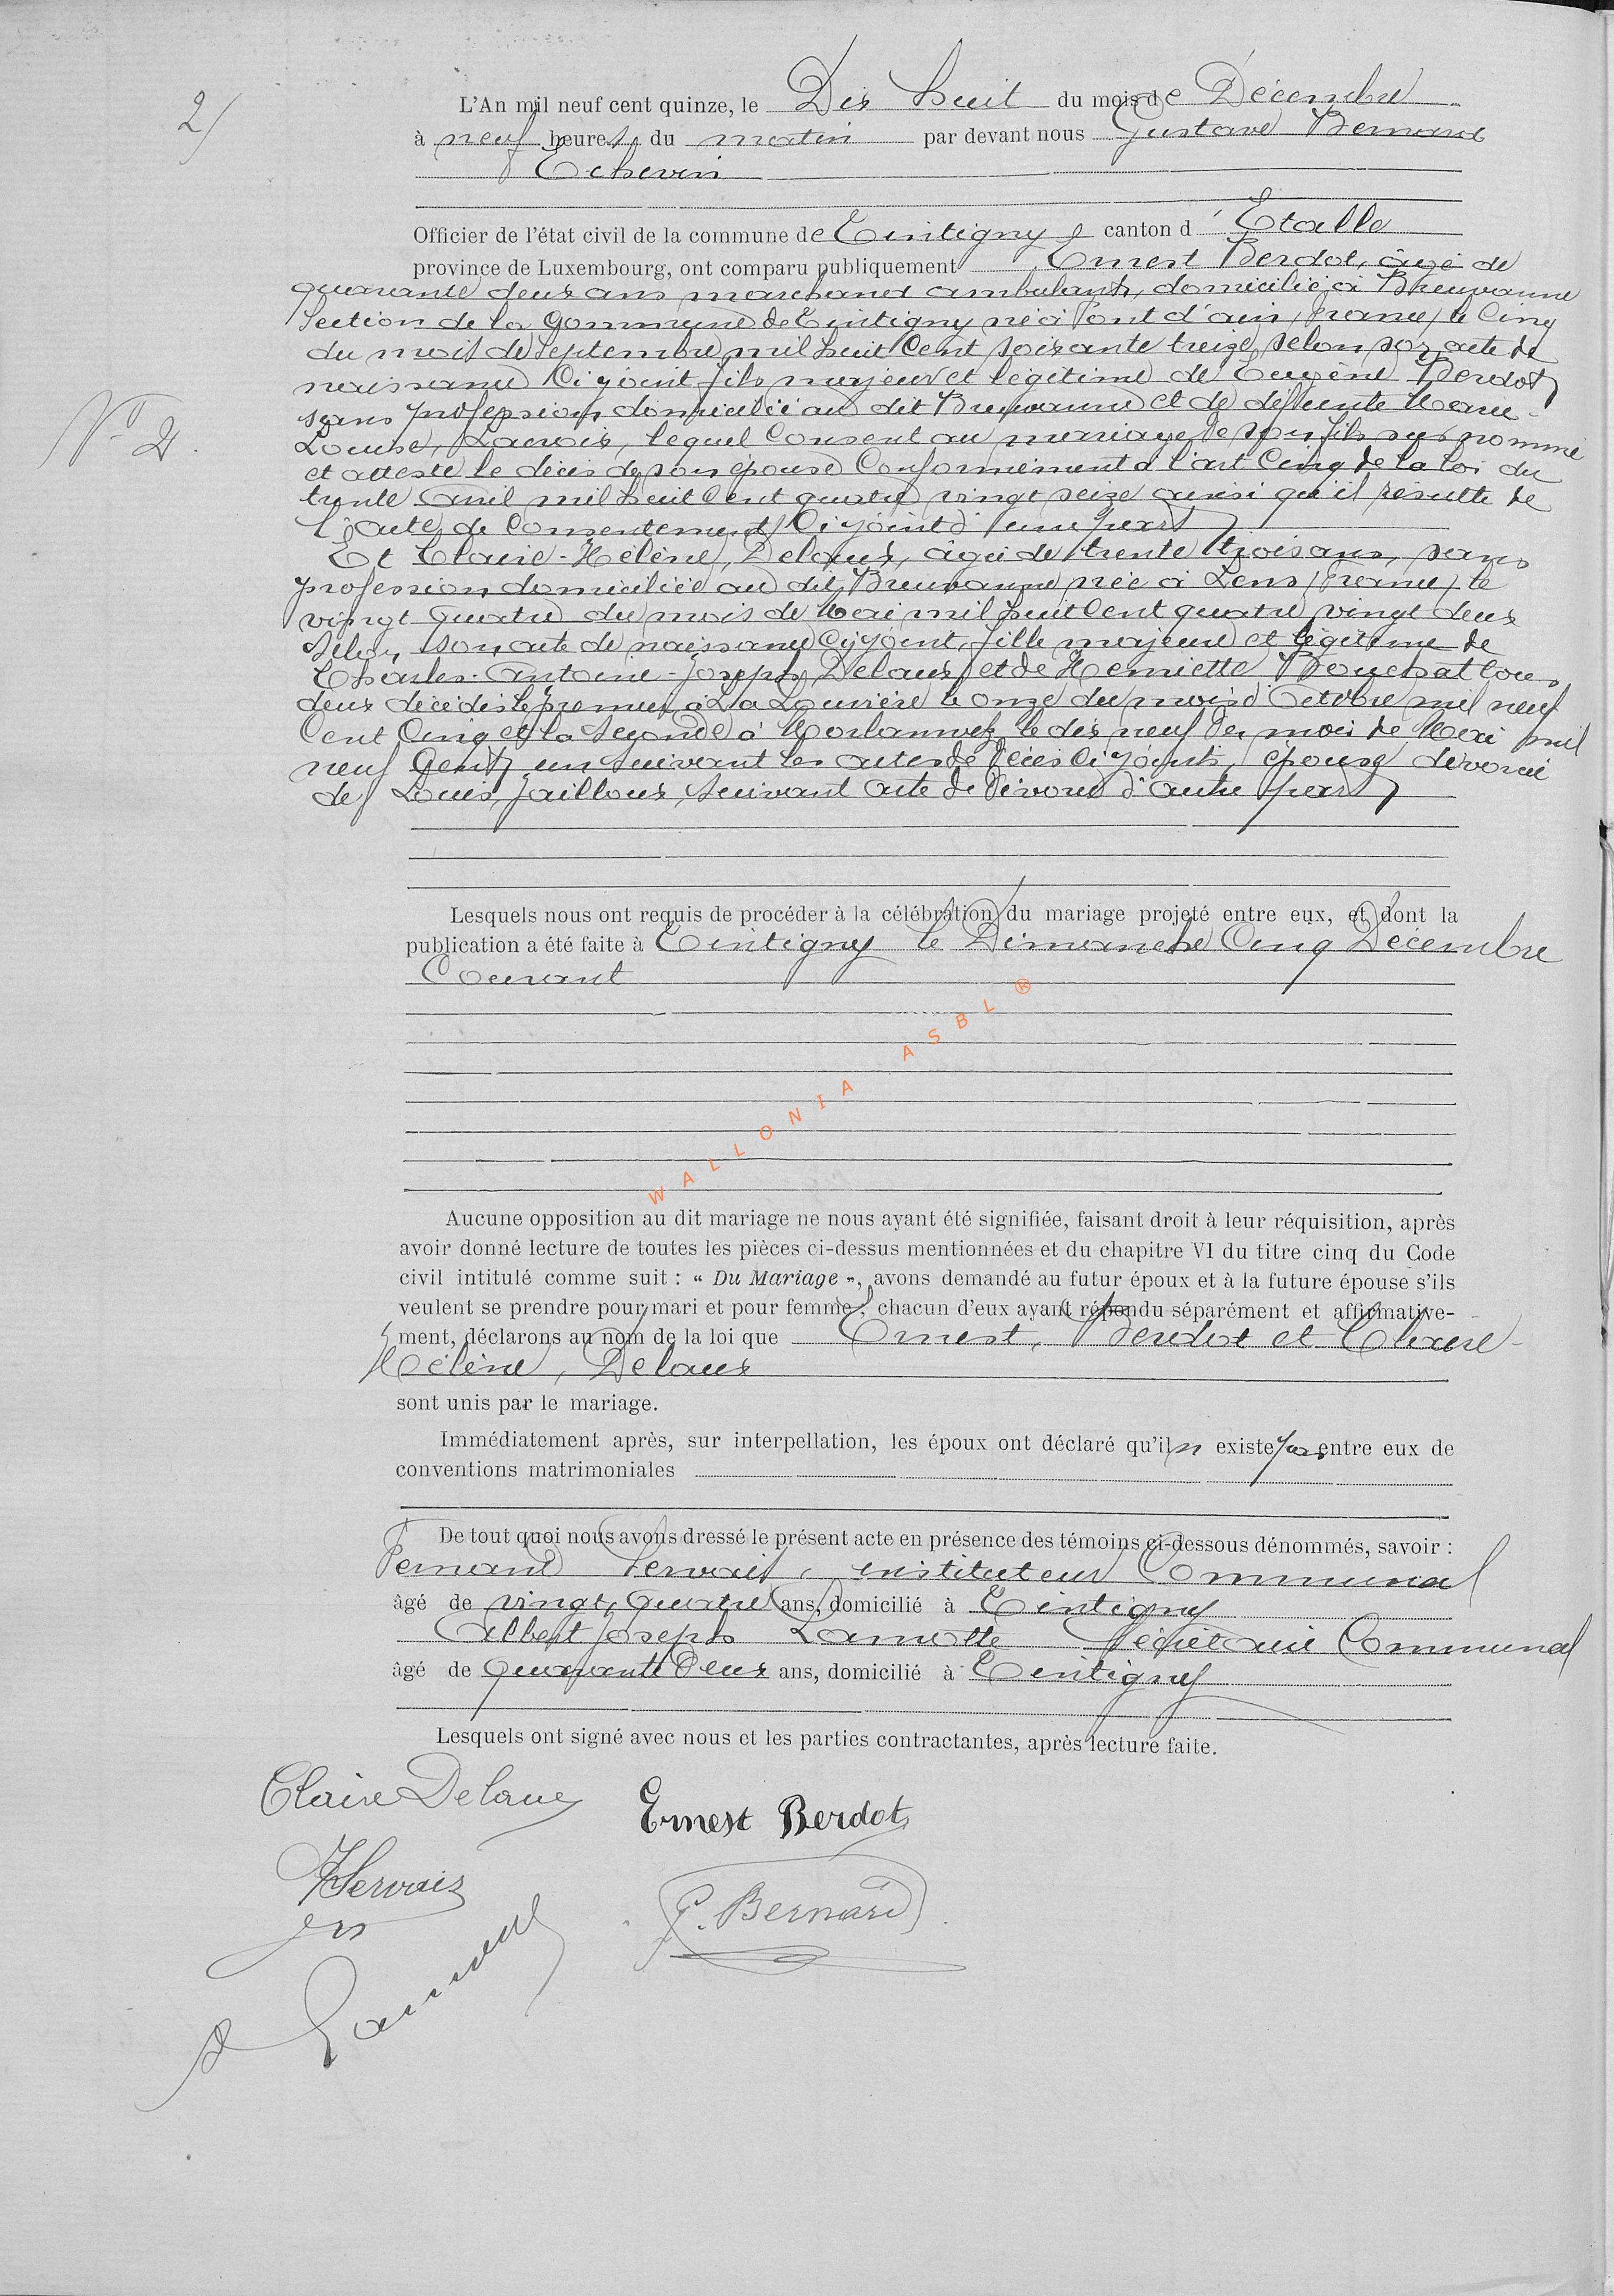 2/
L'An mil neuf cent quinze, le Dix huit du mois de Décembre
à neuf heures du matin par devant nous Gustave Bernard
Echevin
Officier de l'état civil de la commune de Tintigny canton d'Etalle
province de Luxembourg, ont comparu publiquement Ernest Berdot, âgé de
quarante deux ans marchand ambulant, domicilié à Breuvanne
Section de la Commune de Tintigny né à Pont d'ain (France) le Cinq
du mois de Septembre mil huit Cent soixante treize, selon son acte de
naissance Ci joint fils majeur et légitime de Eugène Berdot
N° 2.
sans profession domicilié au dit Breuvanne et de défunte Marie-
Louise, Lacroix, lequel Consent au mariage de son fils sus nommé
et atteste le décès de son épouse Conformément à l'art Cinq de la loi du
trente avril mil huit Cent quatre vingt seize ainsi qu'il résulte de
l'acte de Consentement Ci joint d'une part
Et Claire-Hélène, Delaux, âgée de trente trois ans, sans
profession domiciliée au dit Breuvanne née à Lens (France) le
vingt quatre du mois de Mai mil huit Cent quatre vingt deux
selon son acte de naissance Ci joint, fille majeure et légitime de
Charles-Antoine-Joseph Delaux et de Henriette Bouchat tous
deux décédés le premier à La Louvière le onze du mois d'Octobre mil neuf
Cent Cinq et la seconde à Morlanwelz le dix neuf du mois de Mai mil
neuf Cent un suivant les actes de décès Ci joints, épouse divorcée
de Louis, Jailloux, suivant acte de divorce d'autre part
Lesquels nous ont requis de procéder à la célébration du mariage projeté entre eux, et dont la
publication a été faite à Tintigny le Dimanche Cinq Décembre
Courant
WALLONIA ASBL ®
Aucune opposition au dit mariage ne nous ayant été signifiée, faisant droit à leur réquisition, après
avoir donné lecture de toutes les pièces ci-dessus mentionnées et du chapitre VI du titre cinq du Code
civil intitulé comme suit : « Du Mariage », avons demandé au futur époux et à la future épouse s'ils
veulent se prendre pour mari et pour femme ; chacun d'eux ayant répondu séparément et affirmative-
ment, déclarons au nom de la loi que Ernest, Berdot et Claire-
Hélène, Delaux
sont unis par le mariage.
Immédiatement après, sur interpellation, les époux ont déclaré qu'il n existe pas entre eux de
conventions matrimoniales
De tout quoi nous avons dressé le présent acte en présence des témoins ci-dessous dénommés, savoir :
Fernand Servais, instituteur Communal
âgé de vingt quatre ans, domicilié à Tintigny
Albert Joseph Lamotte Secrétaire Communal
âgé de quarante deux ans, domicilié à Tintigny
Lesquels ont signé avec nous et les parties contractantes, après lecture faite.
Claire Delaux Ernest Berdot
FServais
G. Bernard